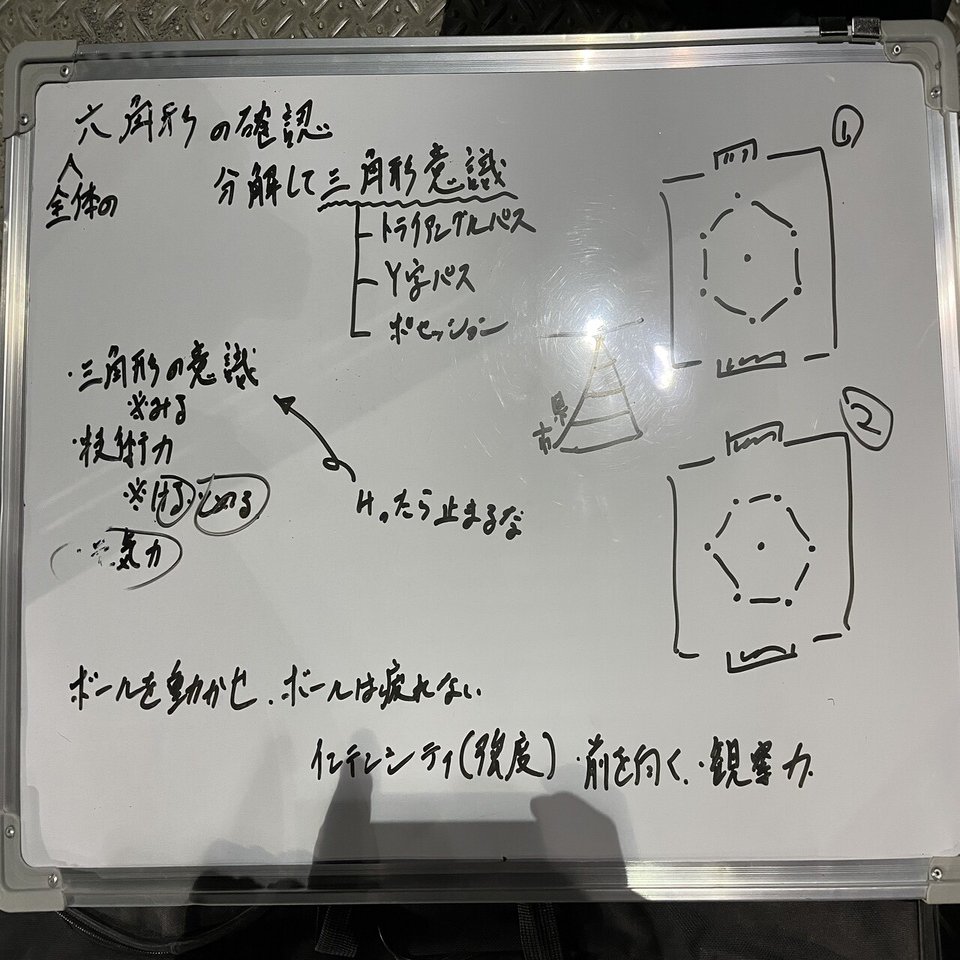 六角形の確認
全体の
分解して三角形意識
トライアングルパス
Y字パス
ポゼッション
・三角形の意識
※みる
・技術力
※ける・とめる
気力
たら止まるな
県
市
①
②
ボールを動かせ、ボールは疲れない
インテンシティ(強度)・前を向く、・観察力